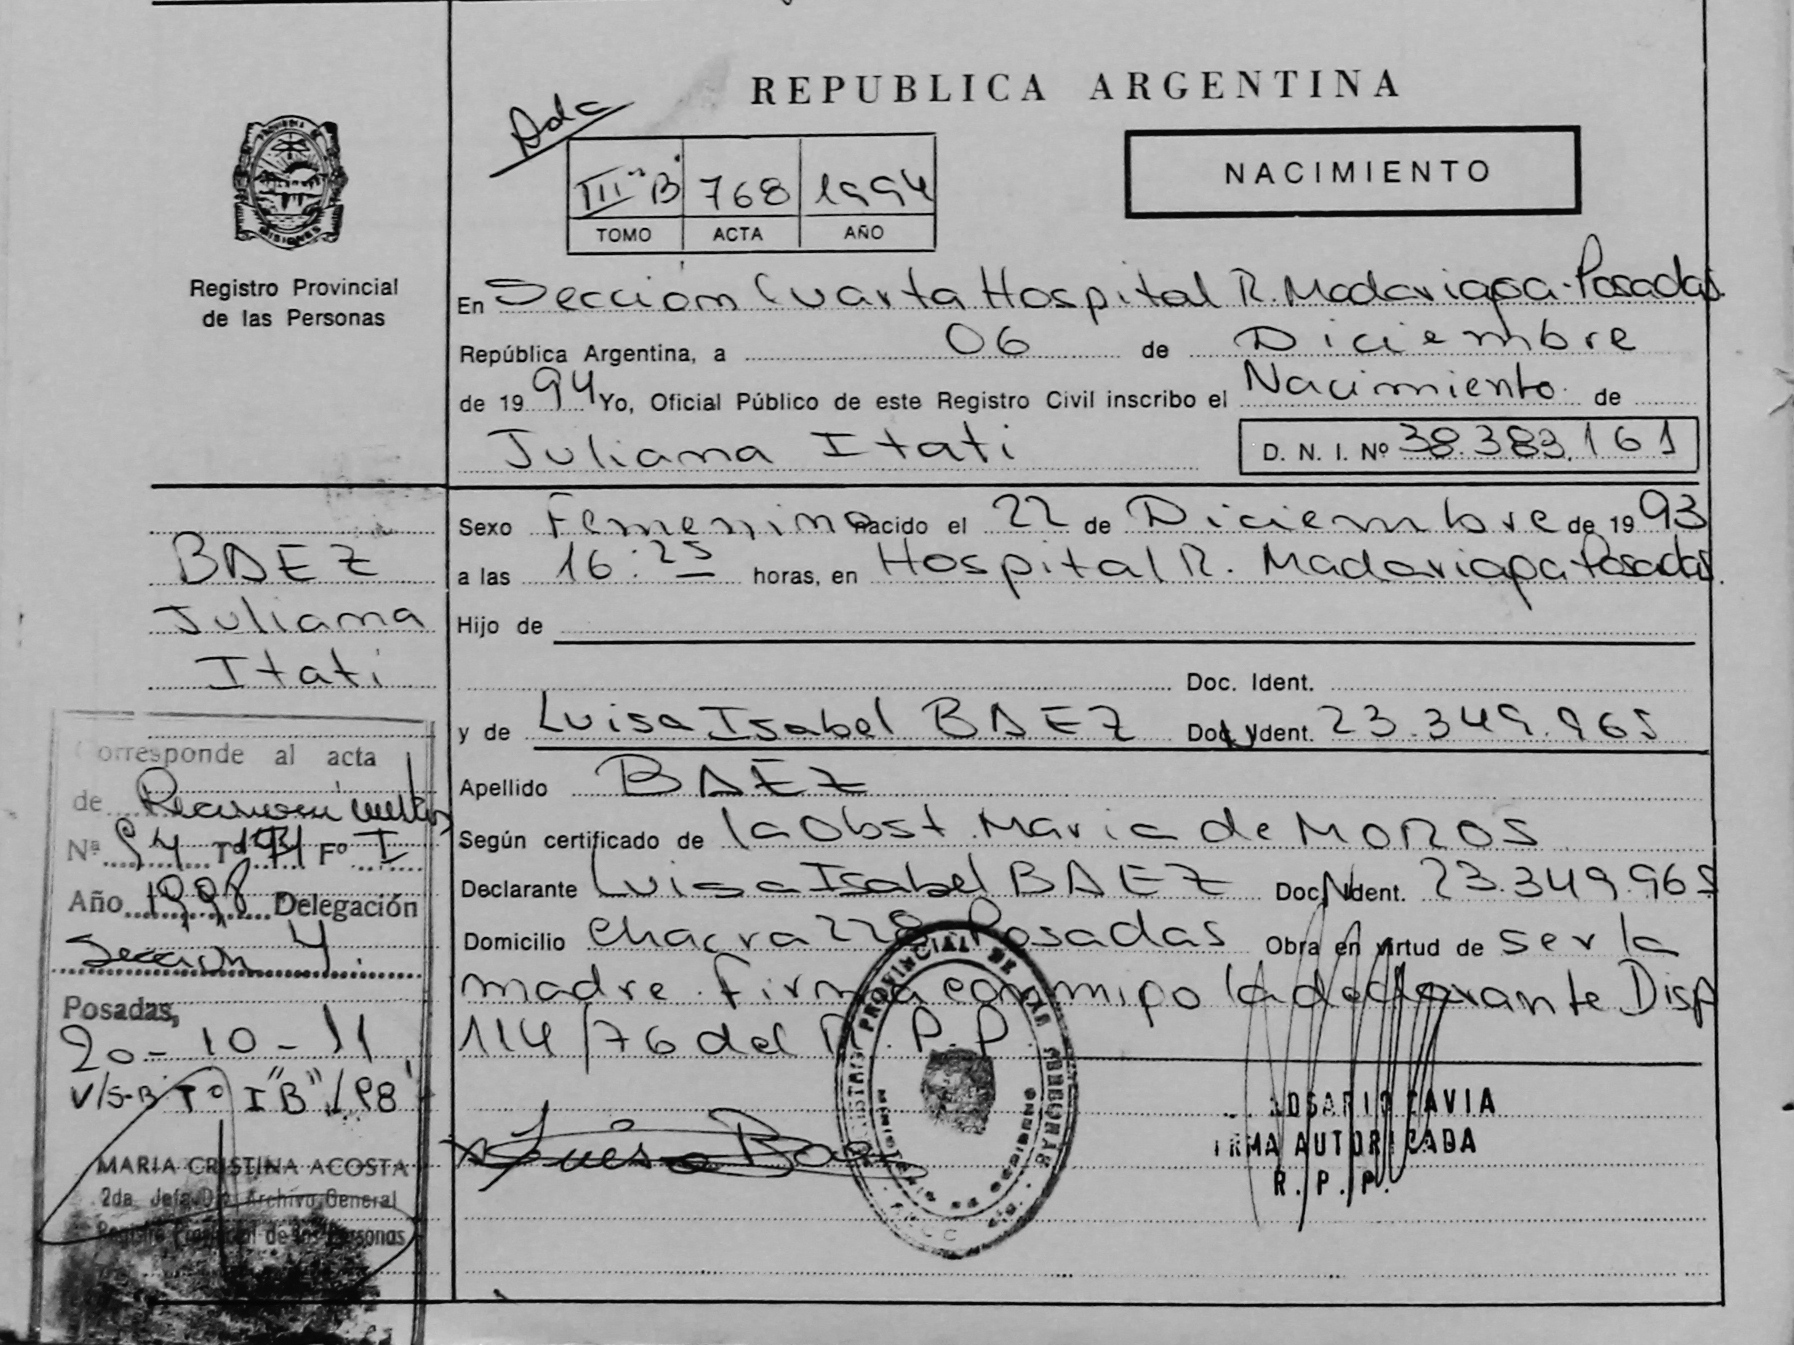 REPUBLICA ARGENTINA
Adc
III "B" 768 1994
TOMO ACTA AÑO
NACIMIENTO
PROVINCIA DE MISIONES
Registro Provincial
de las Personas
En Sección Cuarta Hospital R. Madariaga-Posadas
República Argentina, a 06 de Diciembre
de 1994 Yo, Oficial Público de este Registro Civil inscribo el Nacimiento de
Juliana Itati D. N. I. Nº 38.383.161
BAEZ
Juliana
Itati
Sexo Femenino nacido el 22 de Diciembre de 1993
a las 16:25 horas, en Hospital R. Madariaga Posadas
Hijo de
Doc. Ident.
y de Luisa Isabel BAEZ Doc. Ident. 23.349.965
Apellido BAEZ
Según certificado de la Obst. Maria de MOROS
Declarante Luisa Isabel BAEZ Doc. Ident. 23.349.965
Domicilio chacra 228 Posadas Obra en virtud de ser la
madre. Firma conmigo la declarante Disp
114/76 del R.P.P.
Luisa Baez
REGISTRO PROVINCIAL DE LAS PERSONAS
MINISTERIO DE GOBIERNO
ROSARIO CAVIA
FIRMA AUTORIZADA
R. P. P.
Corresponde al acta
de Reconocimiento
Nª 54 Tº Fº I
Año 1998 Delegación
Sección 4.
Posadas,
20-10-11
V/S-B Tº I "B"/98
MARIA CRISTINA ACOSTA
2da. Jefa Archivo General
Registro Provincial de las Personas